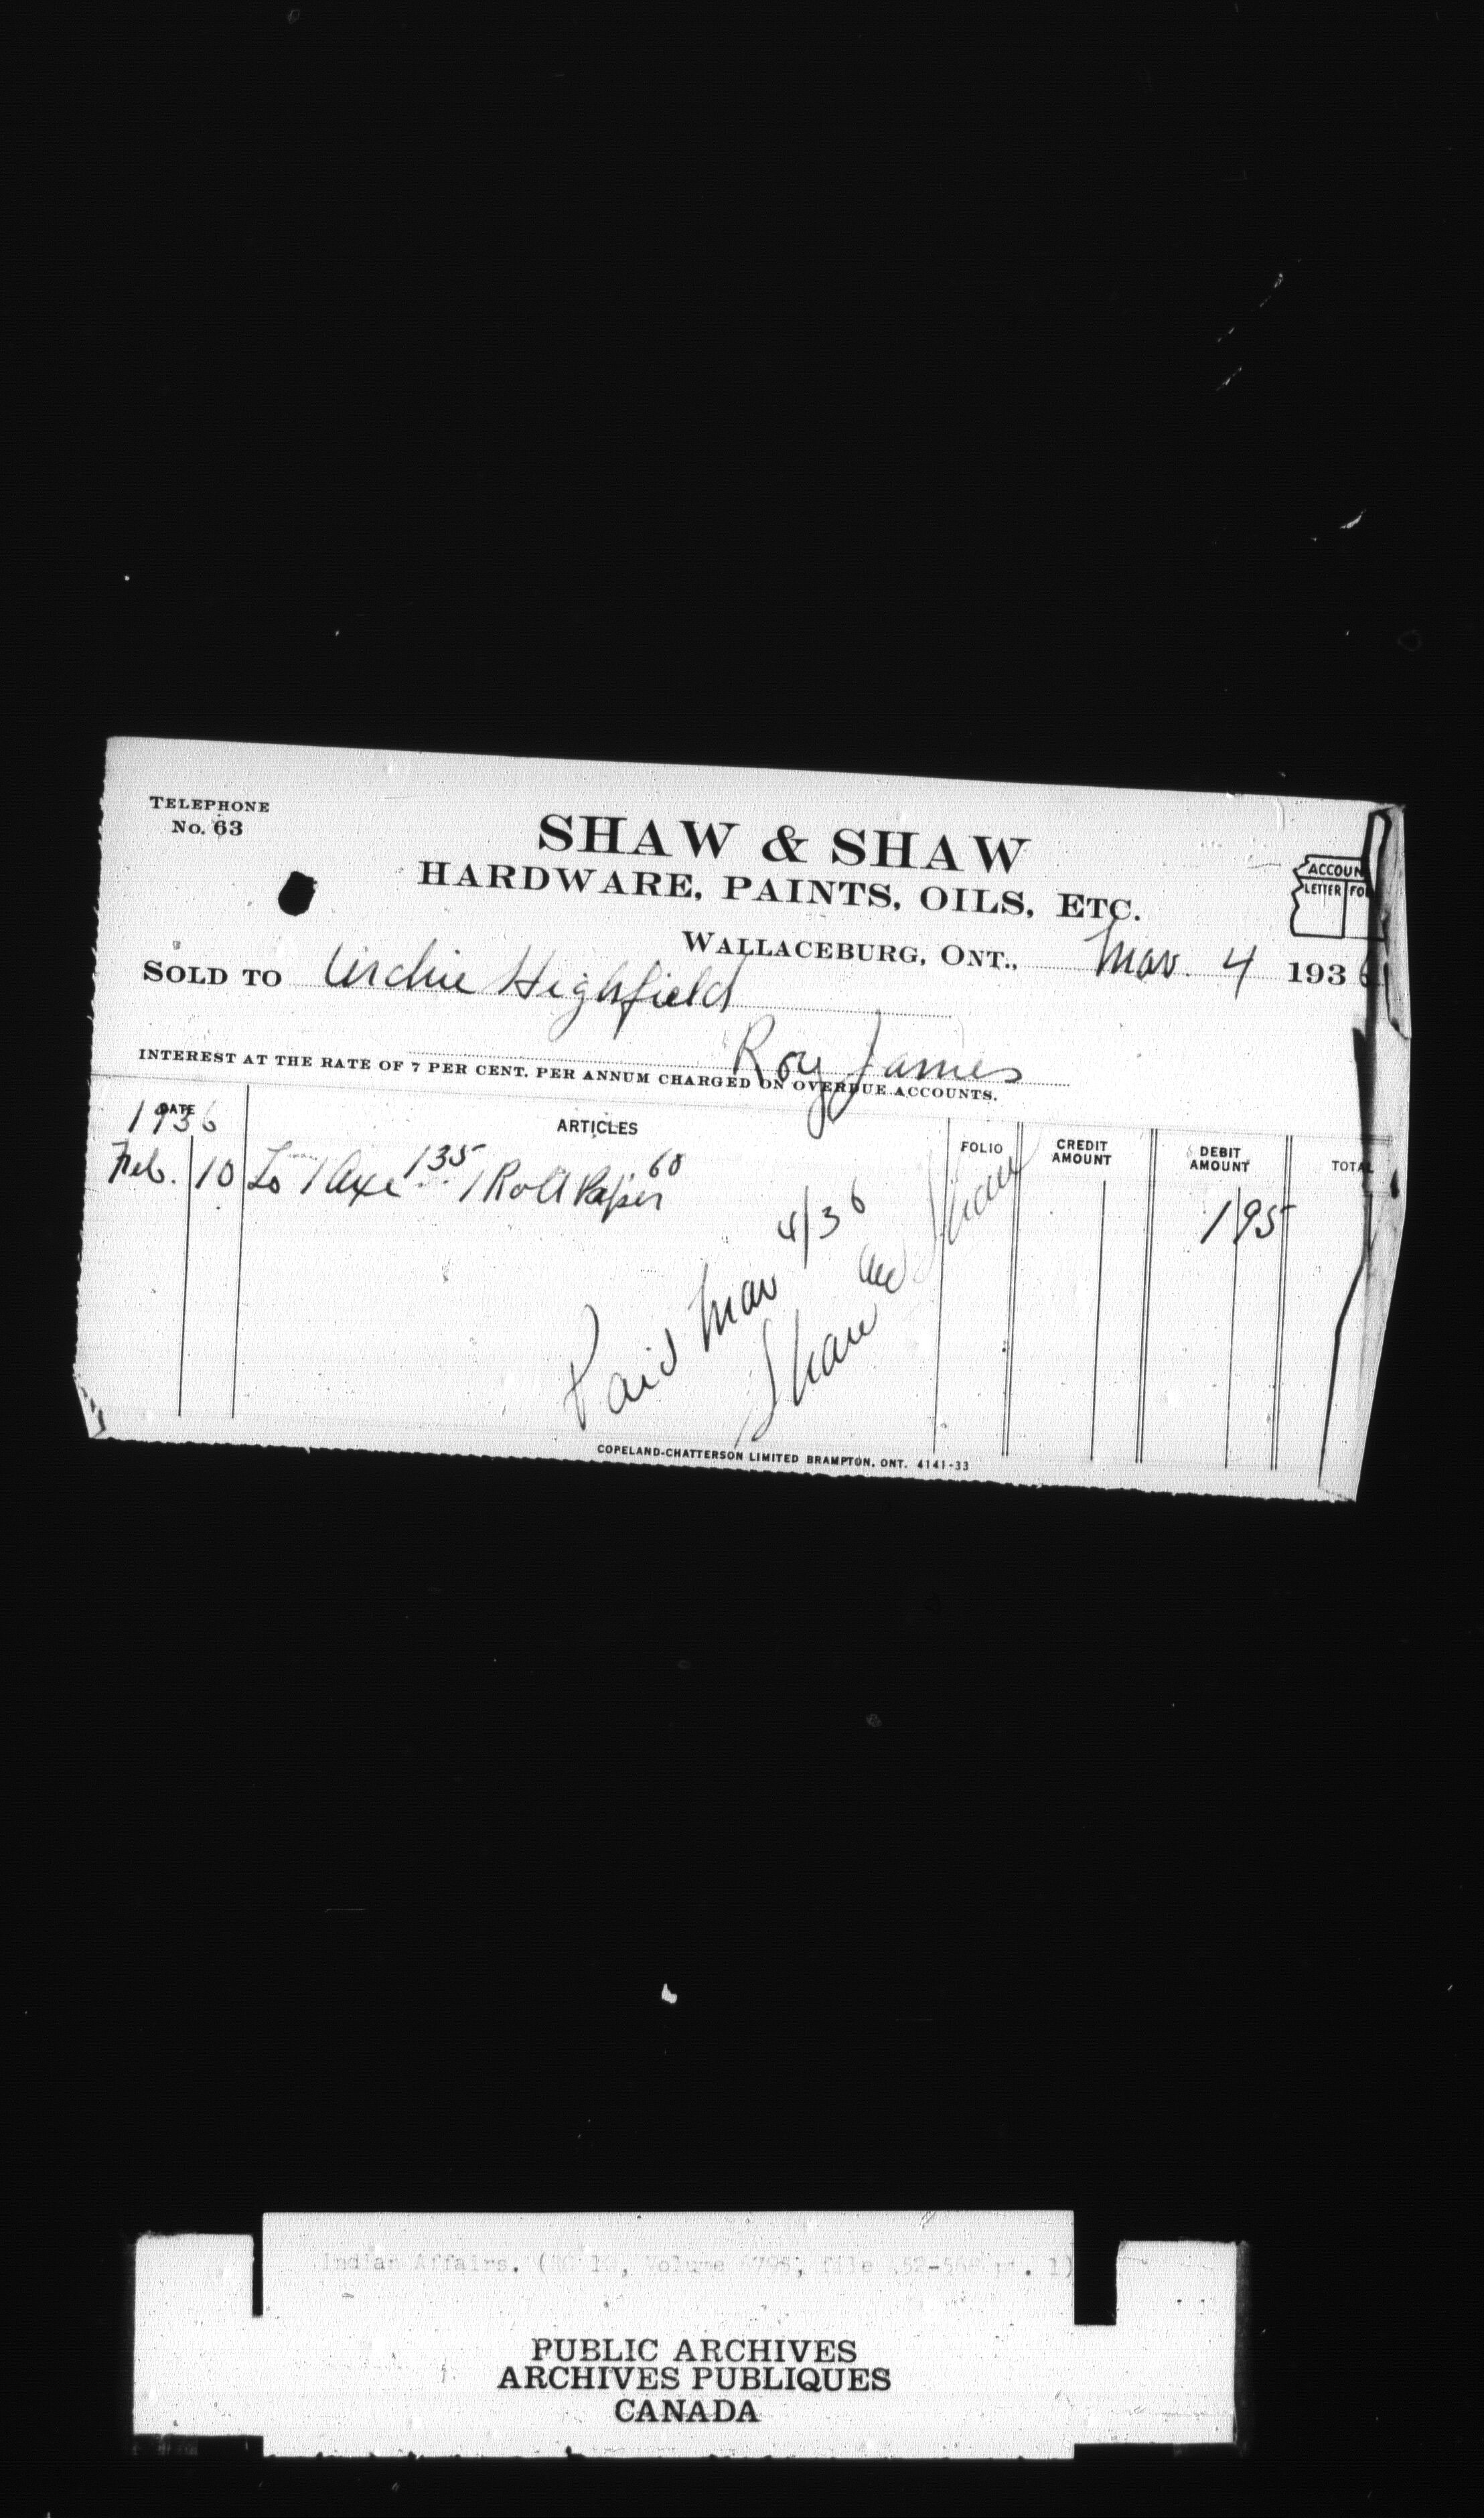 TELEPHONE
No. 63
SHAW & SHAW
HARDWARE, PAINTS, OILS, ETC.
ACCOUN
LETTER FO
WALLACEBURG, ONT., Mar. 4 1936
SOLD TO Archie Highfield
Roy James
INTEREST AT THE RATE OF 7 PER CENT. PER ANNUM CHARGED ON OVERDUE ACCOUNTS.
DATE ARTICLES FOLIO CREDIT AMOUNT DEBIT AMOUNT TOTAL
1936
Feb. 10 To 1 Axe 1 35 1 Roll Paper 60 1 95
Paid Mar 4/36
Shaw and Shaw
COPELAND-CHATTERSON LIMITED BRAMPTON, ONT. 4141-33
Indian Affairs. (RG 10, Volume 6795, file 452-568 pt. 1)
PUBLIC ARCHIVES
ARCHIVES PUBLIQUES
CANADA